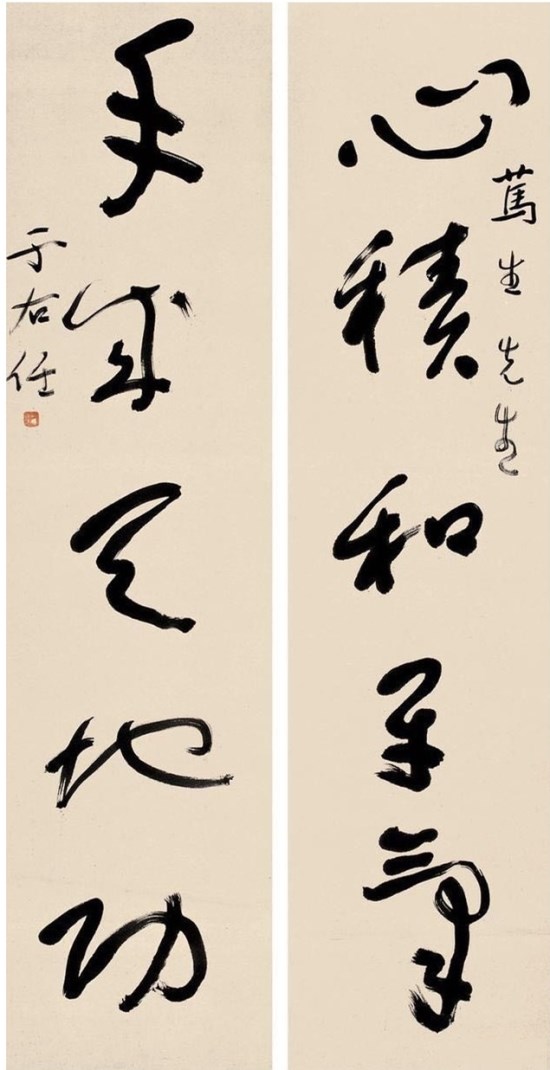 篤生先生
心積和平氣
手成天地功
于右任